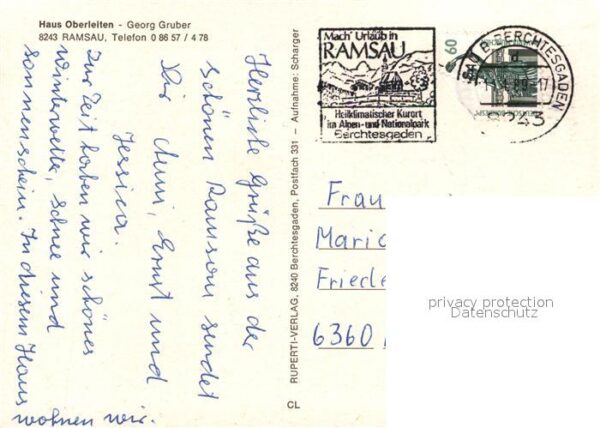 Haus Oberleiten - Georg Gruber
8243 RAMSAU, Telefon 0 86 57 / 4 78
Herzliche Grüße aus der
schönen Ramsau sendet
Dir Chuni, Ernst und
Jessica.
Zur Zeit haben wir schönes
Winterwetter, Schnee und
Sonnenschein. In diesem Haus
wohnen wir.
RUPERTI-VERLAG, 8240 Berchtesgaden, Postfach 331 – Aufnahme: Scharger
CL
Mach' Urlaub in
RAMSAU
Heilklimatischer Kurort
im Alpen- und Nationalpark
Berchtesgaden
60
RAMSAU B. BERCHTESGADEN
8243
Frau
Maria
Friede
6360
privacy protection
Datenschutz